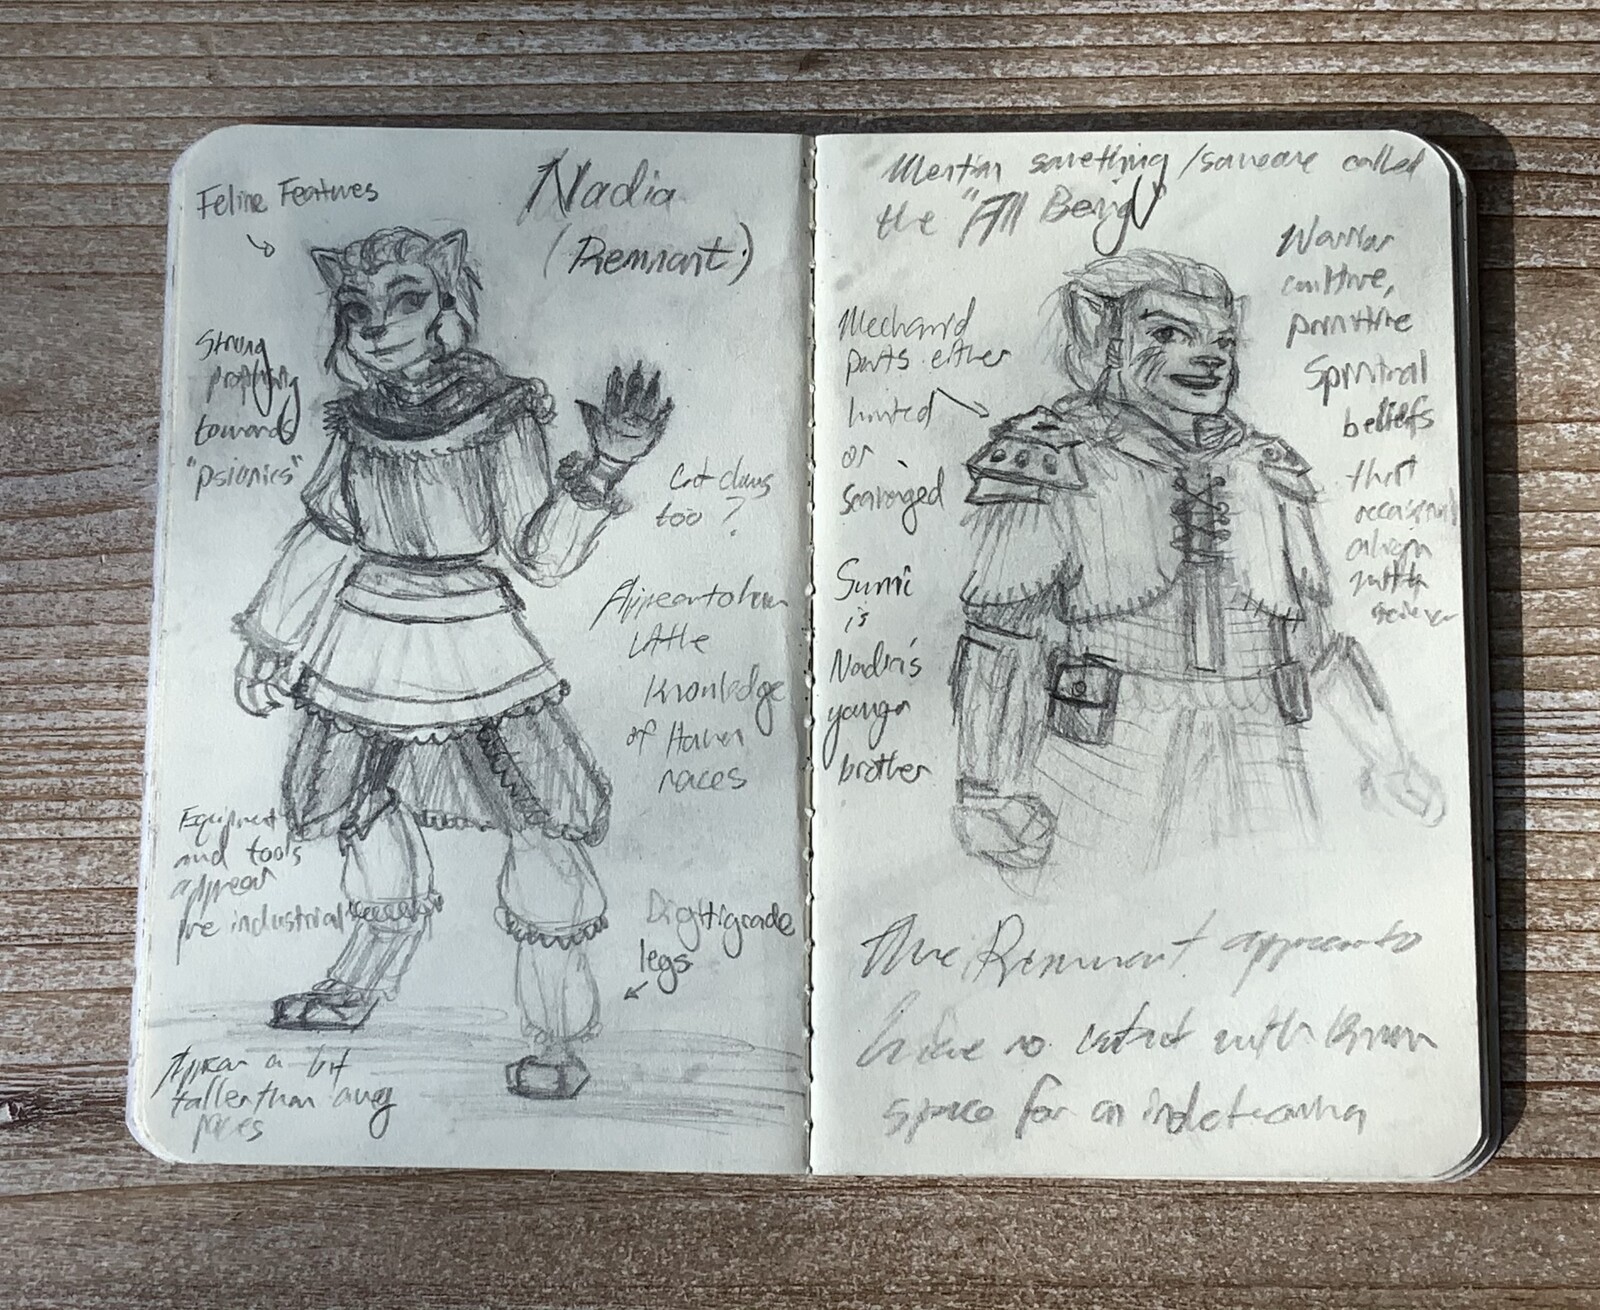 Feline Features
Nadia
(Remnant)
Strong
towards
"psionics"
Cat claws
too?
Appear to have
little
Knowledge
of Haven
races
Equipment
and tools
appear
pre industrial
Digitigrade
legs
Appear a bit
taller than avg
races
Mention something/someone called
the "All Being"
Warrior
culture,
primitive
Spiritual
beliefs
that
occasional
align
with
Mechanid
parts either
limited
or
scavenged
Sumic
is
Nadia's
younger
brother
The Remnant appear to
have no contact with known
space for an